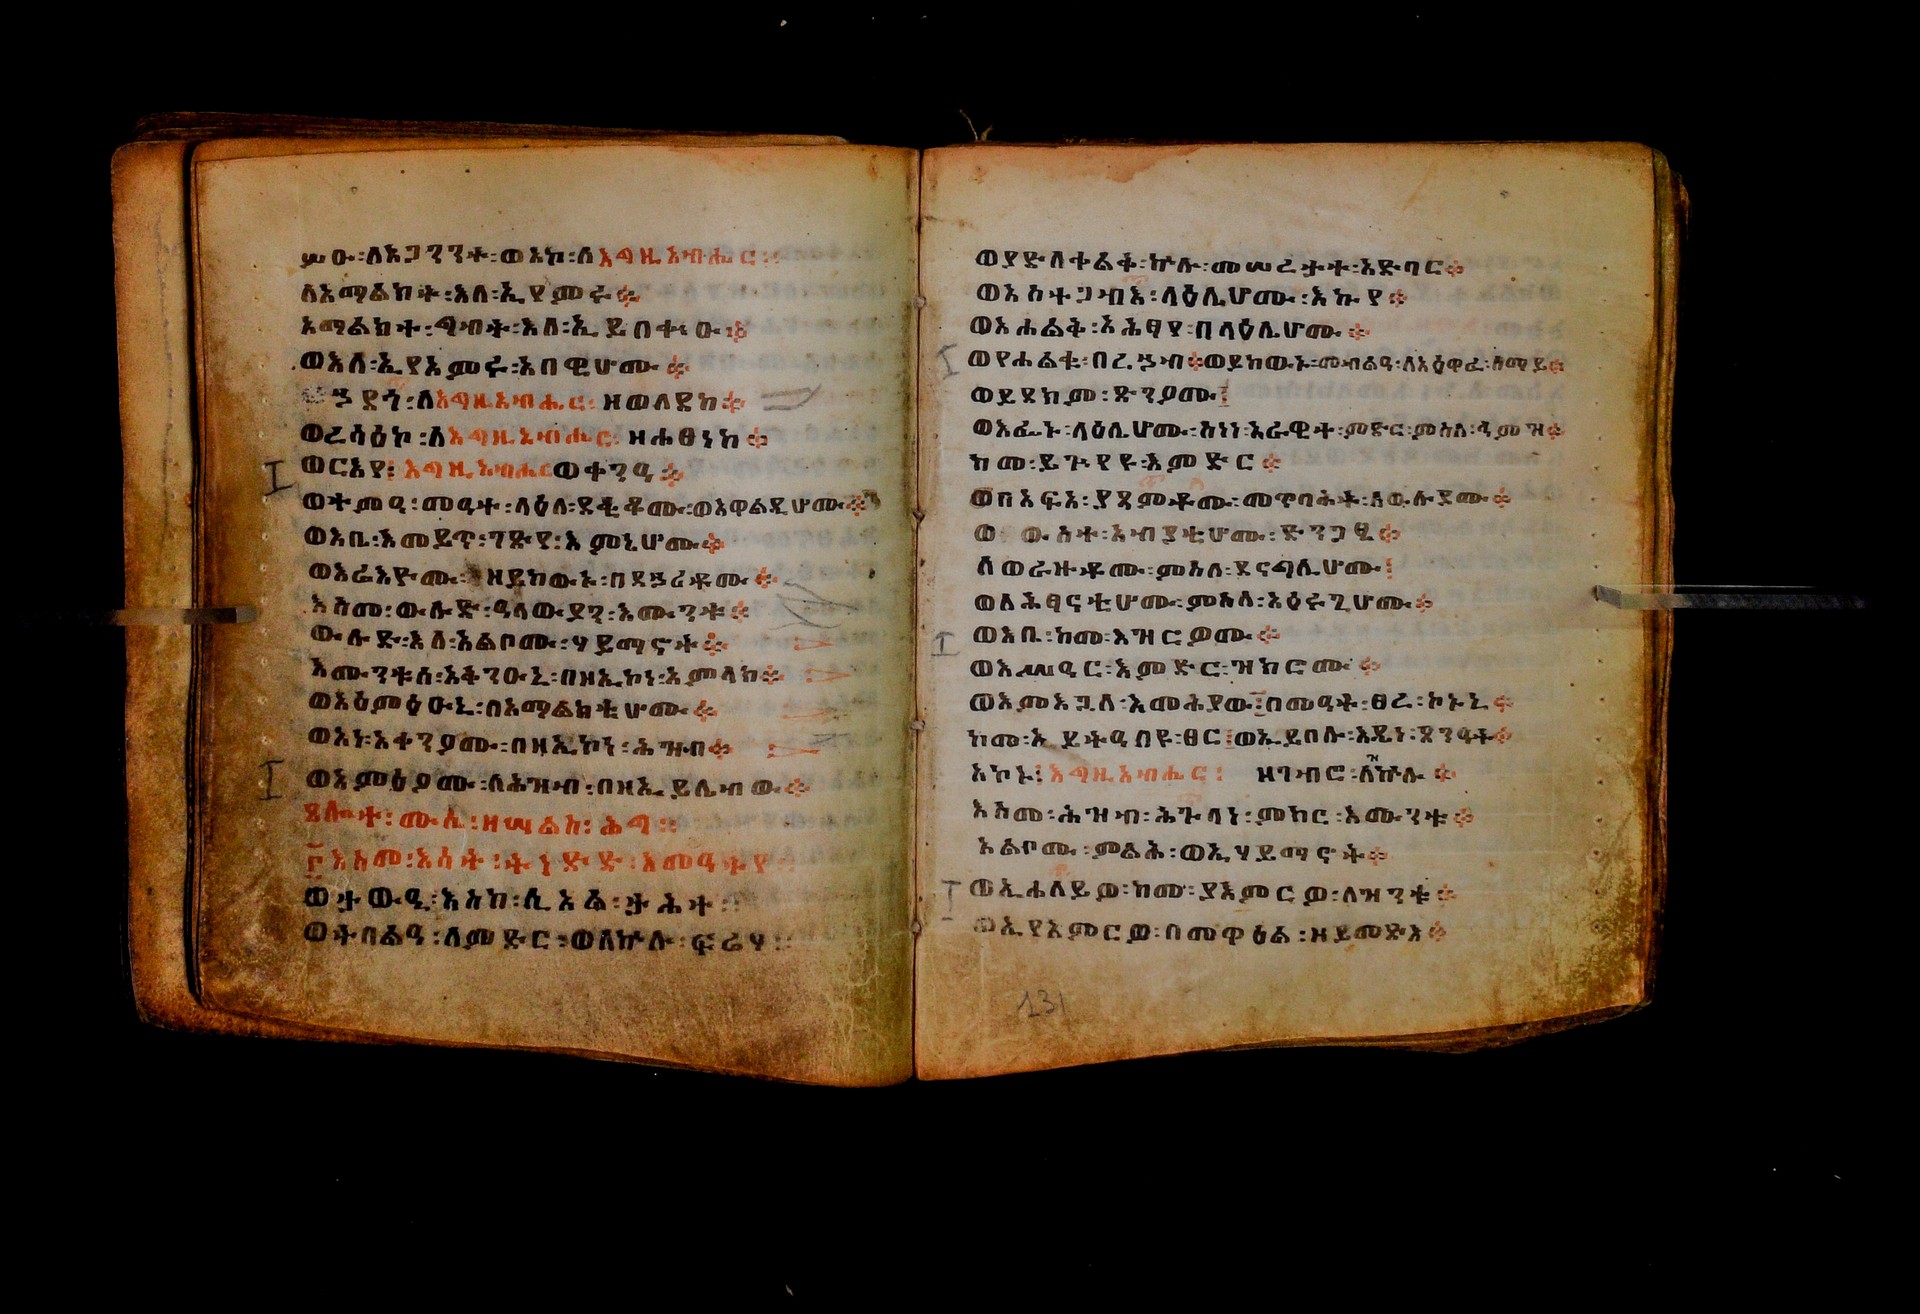 ሦዑ፡ለአጋንንት፡ወአኮ፡ለእግዚአብሔር፡፡
ለአማልክት፡እለ፡ኢያምሩ፨
አማልክት፡ግብት፡እለ፡ኢይበቍዑ፨
ወእለ፡ኢያአምሩ፡አበዊሆሙ፨
ለእግዚአብሔር፡ዘወለደከ፨
ወረሳዕኮ፡ለእግዚአብሔር፡ዘሐፀነከ፨
ወርእየ፡እግዚአብሔርወቀንዓ፨
ወተምዓ፡መዓተ፡ላዕለ፡ደቂቆሙ፡ወአዋልዲሆሙ፨
ወእቤ፡እመይጥ፡ገጽየ፡እምኔሆሙ፨
ወአሬእዮሙ፡ዘይከውኑ፡በደኃሪቶሙ፨
እስመ፡ውሉድ፡ዓላውያን፡እሙንቱ፨
ውሉድ፡እለ፡አልቦሙ፡ሃይማኖት፨
እሙንቱሰ፡አቅንዑኒ፡በዘኢኮነ፡አምላክ፨
ወአዕምዕዑኒ፡በአማልክቲሆሙ፨
ወአነ፡አቀንዖሙ፡በዘኢኮነ፡ሕዝብ፨
ወአምዕዖሙ፡ለሕዝብ፡በዘኢይሌብው፨
ጸሎተ፡ሙሴ፡ዘሣልስ፡ሕግ፡፡
እስመ፡እሳት፡ትነድድ፡እመዓትየ
ወታውዒ፡እስከ፡ሲኦል፡ታሕተ፡፡
ወትበልዓ፡ለምድር፡ወለኵሉ፡ፍሬሃ፡፡
ወያድለቀልቅ፡ኵሉ፡መሠረታተ፡አድባር፨
ወአስተጋብእ፡ላዕሌሆሙ፡እኩየ፨
ወአሐልቅ፡አሕፃየ፡በላዕሌሆሙ፨
ወየሐልቁ፡በረኃብ፨ወይከውኑ፡መብልዓ፡ለአዕዋፈ፡ሰማይ፨
ወይደክም፡ጽንዖሙ፡
ወእፌኑ፡ላዕሌሆሙ፡ስነነ፡አራዊተ፡ምድር፡ምስለ፡ሕምዝ፨
ከመ፡ይጕየዩ፡እምድር፨
ወበአፍአ፡ያጸምቶሙ፡መጥባሕት፡ለውሉደሙ፨
ወውስተ፡አብያቲሆሙ፡ድንጋፄ፨
ለወራዙቶሙ፡ምስለ፡ደናግሊሆሙ፡
ወለሕፃናቲሆሙ፡ምስለ፡አዕሩጊሆሙ፨
ወእቤ፡ከመ፡እዝርዎሙ፨
ወእሤዓር፡እምድር፡ዝክሮሙ፨
ወእምአጋለ፡እመሕያው፡በመዓት፡ፀረ፡ኮኑኒ፨
ከመ፡ኢይትዓበዩ፡ፀር፡ወኢይበሉ፡እዴነ፡ጸንዓት፨
አኮኑ፡እግዚአብሔር፡ዘገብሮ፡ለዝኵሉ፨
እስመ፡ሕዝብ፡ሕጉላነ፡ምክር፡እሙንቱ፨
አልቦሙ፡ምልሕ፡ወኢሃይማኖት፨
ወኢሐለይዎ፡ከሙ፡ያእምርዎ፡ለዝንቱ፨
ወኢየአምርዎ፡በመዋዕል፡ዘይመጽእ፨
131